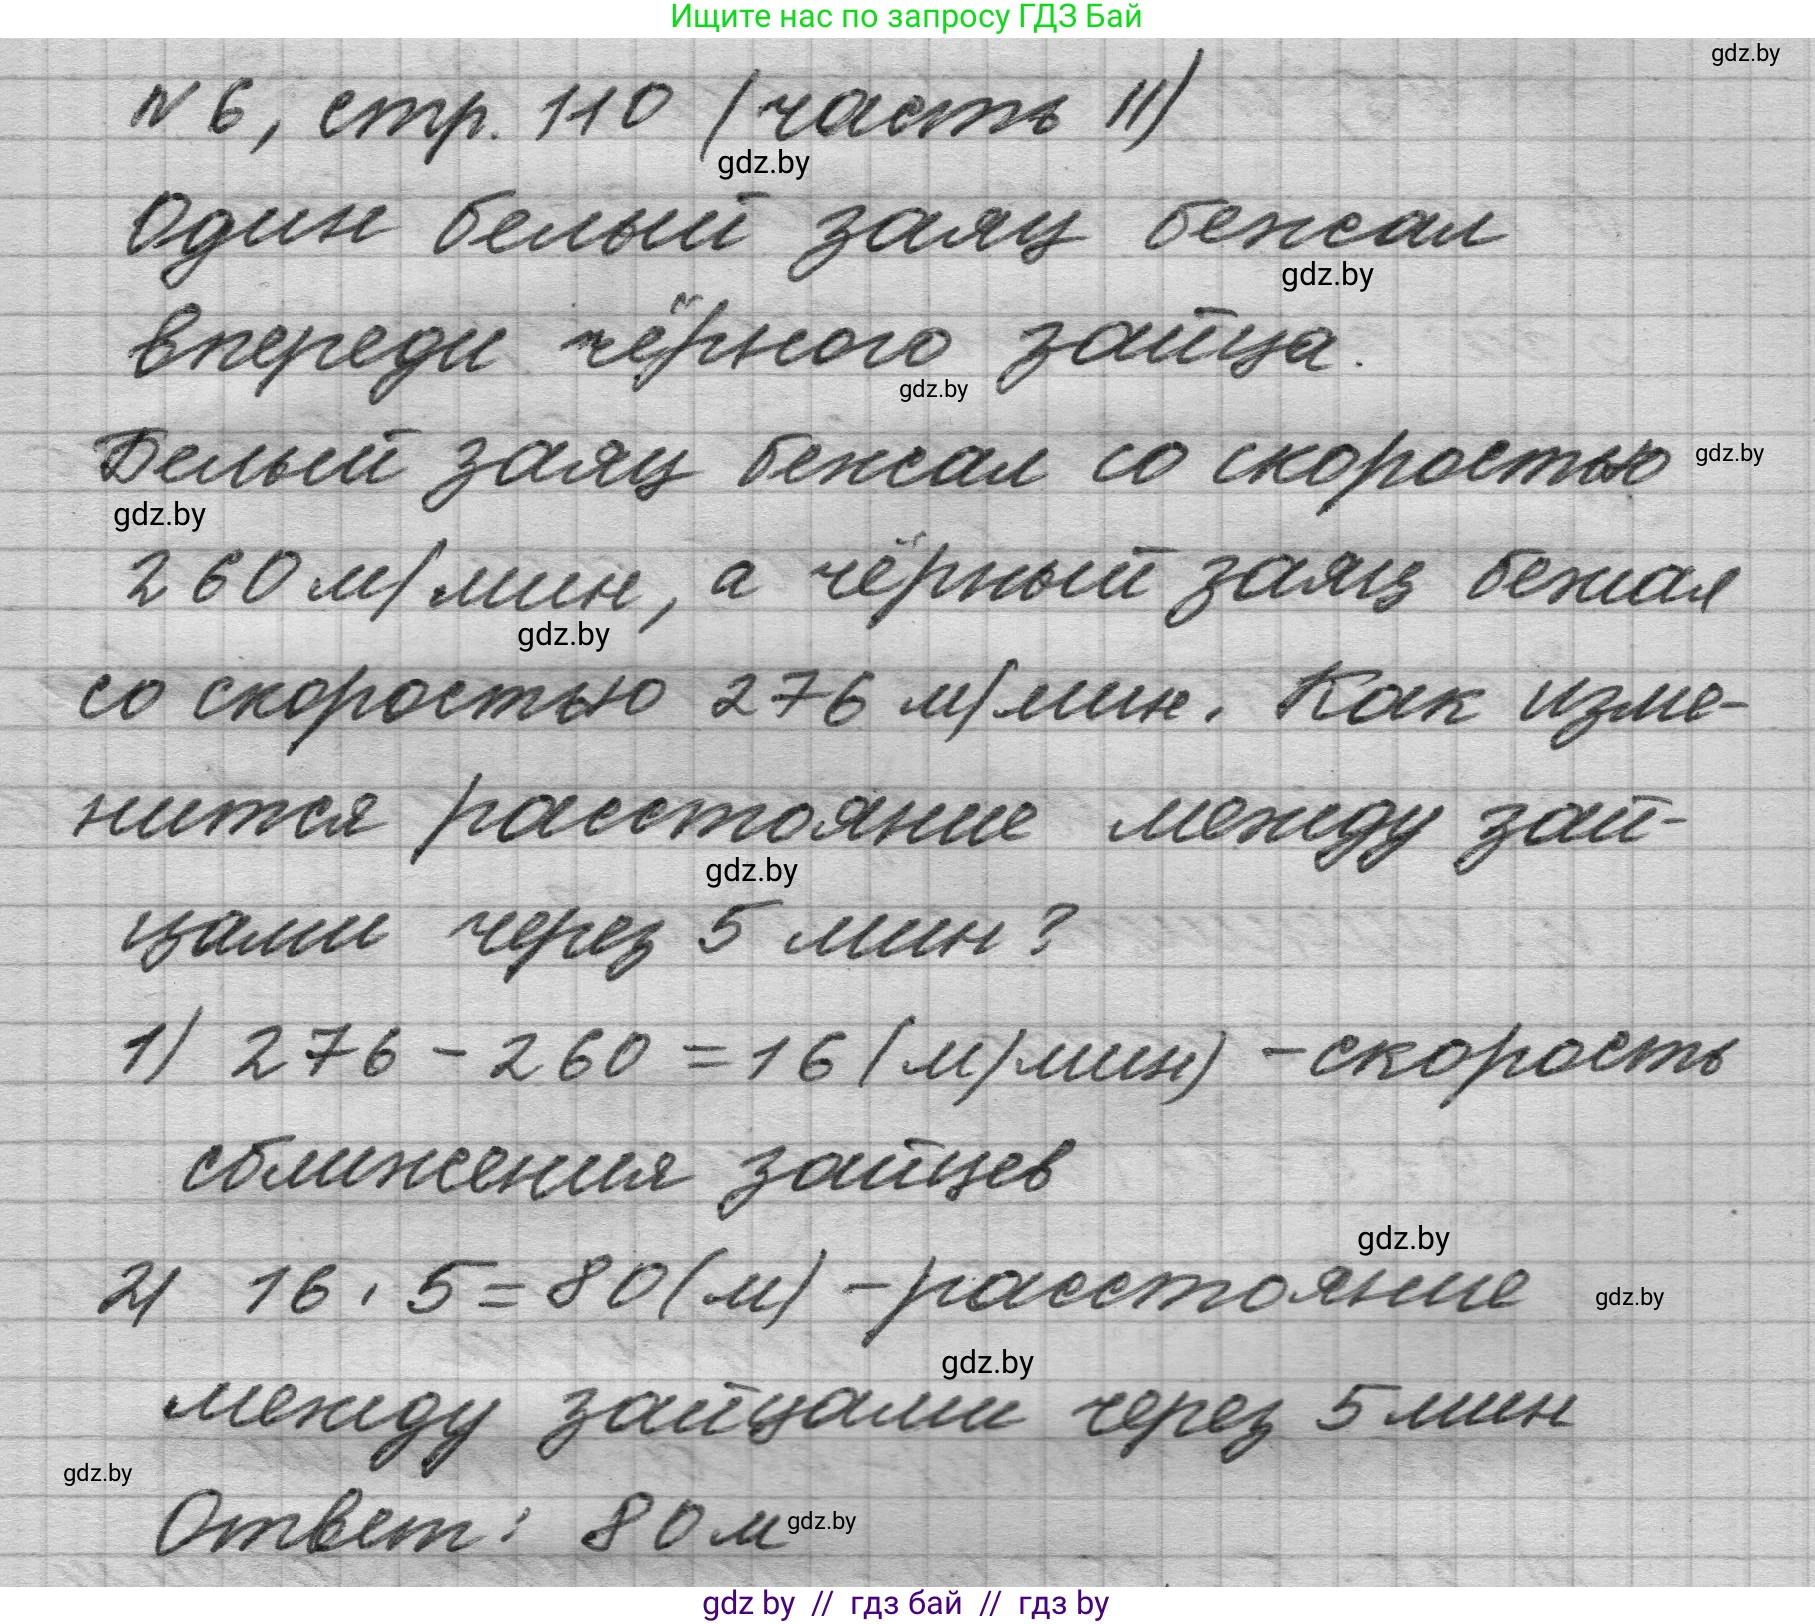 Ищите нас по запросу ГДЗ Бай
gdz.by
№6, стр. 110 (часть II)
gdz.by
Один белый заяц бежал
gdz.by
впереди чёрного зайца.
gdz.by
Белый заяц бежал со скоростью
gdz.by
gdz.by
260 м/мин, а чёрный заяц бежал
gdz.by
со скоростью 276 м/мин. Как изме-
нится расстояние между зай-
gdz.by
цами через 5 мин?
1) 276 - 260 = 16 (м/мин) - скорость
сближения зайцев
gdz.by
2) 16 · 5 = 80 (м) - расстояние
gdz.by
gdz.by
между зайцами через 5 мин
gdz.by
Ответ: 80 м
gdz.by
gdz by // гдз бай // гдз by